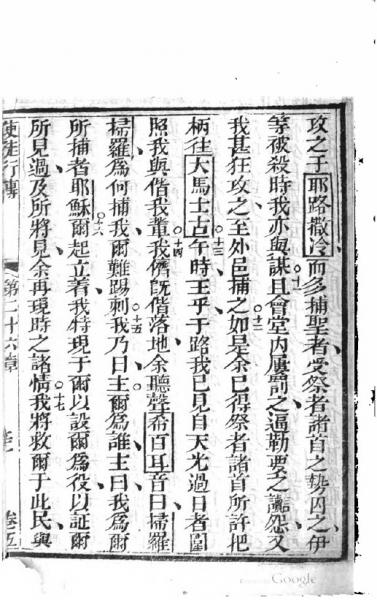 攻之于耶路撒冷而多捕聖者受祭者諸首之勢囚之伊
等被殺時我亦與謀且會堂内屢罰之逼勒要之讟怨又
十一
我甚狂攻之至外邑捕之如是余已得祭者諸首所許把
十二
柄往大馬士古午時王乎于路我已見自天光過日者圍
十三
照我與偕我輩我儕既偕落地余聽聲希百耳音曰掃羅
十四
掃羅為何捕我爾難踢刺我乃曰主爾為誰主曰我為爾
十五
所捕者耶穌爾起立着我特現于爾以設爾為役以証爾
十六
所見過及所將見余再現時之諸情我將救爾于此民與
十七
使徒行傳
第二十六章
卷五
Google